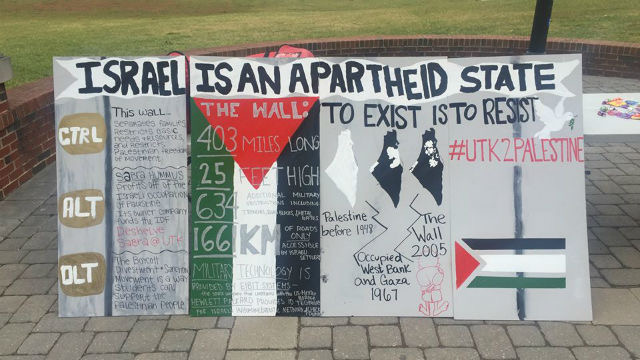 ISRAEL IS AN APARTHEID STATE
CTRL
ALT
DLT
This wall...
Separates families
Restricts basic
needs + resources
and restricts
Palestinian freedom
of movement
Sabra HUMMUS
Profits off of the
Israeli occupation
of Palestine
Its owner company
funds the IDF
Deshelve
Sabra @ UTK
The Boycott
Divestment + Sanction
Movement is a way
students can
support the
Palestinian people
THE WALL:
403 MILES LONG
25 FEET HIGH
634 ADDITIONAL MILITARY
OBSTRUCTIONS INCLUDING
166 KM OF ROADS
ONLY
ACCESSIBLE
BY ISRAELI
SETTLERS
MILITARY TECHNOLOGY IS
PROVIDED BY ELBIT SYSTEMS
HEWLETT PACKARD PROVIDES
TO EXIST IS TO RESIST
Palestine
before 1948
Occupied
West Bank
and Gaza
1967
The
Wall
2005
#UTK2PALESTINE